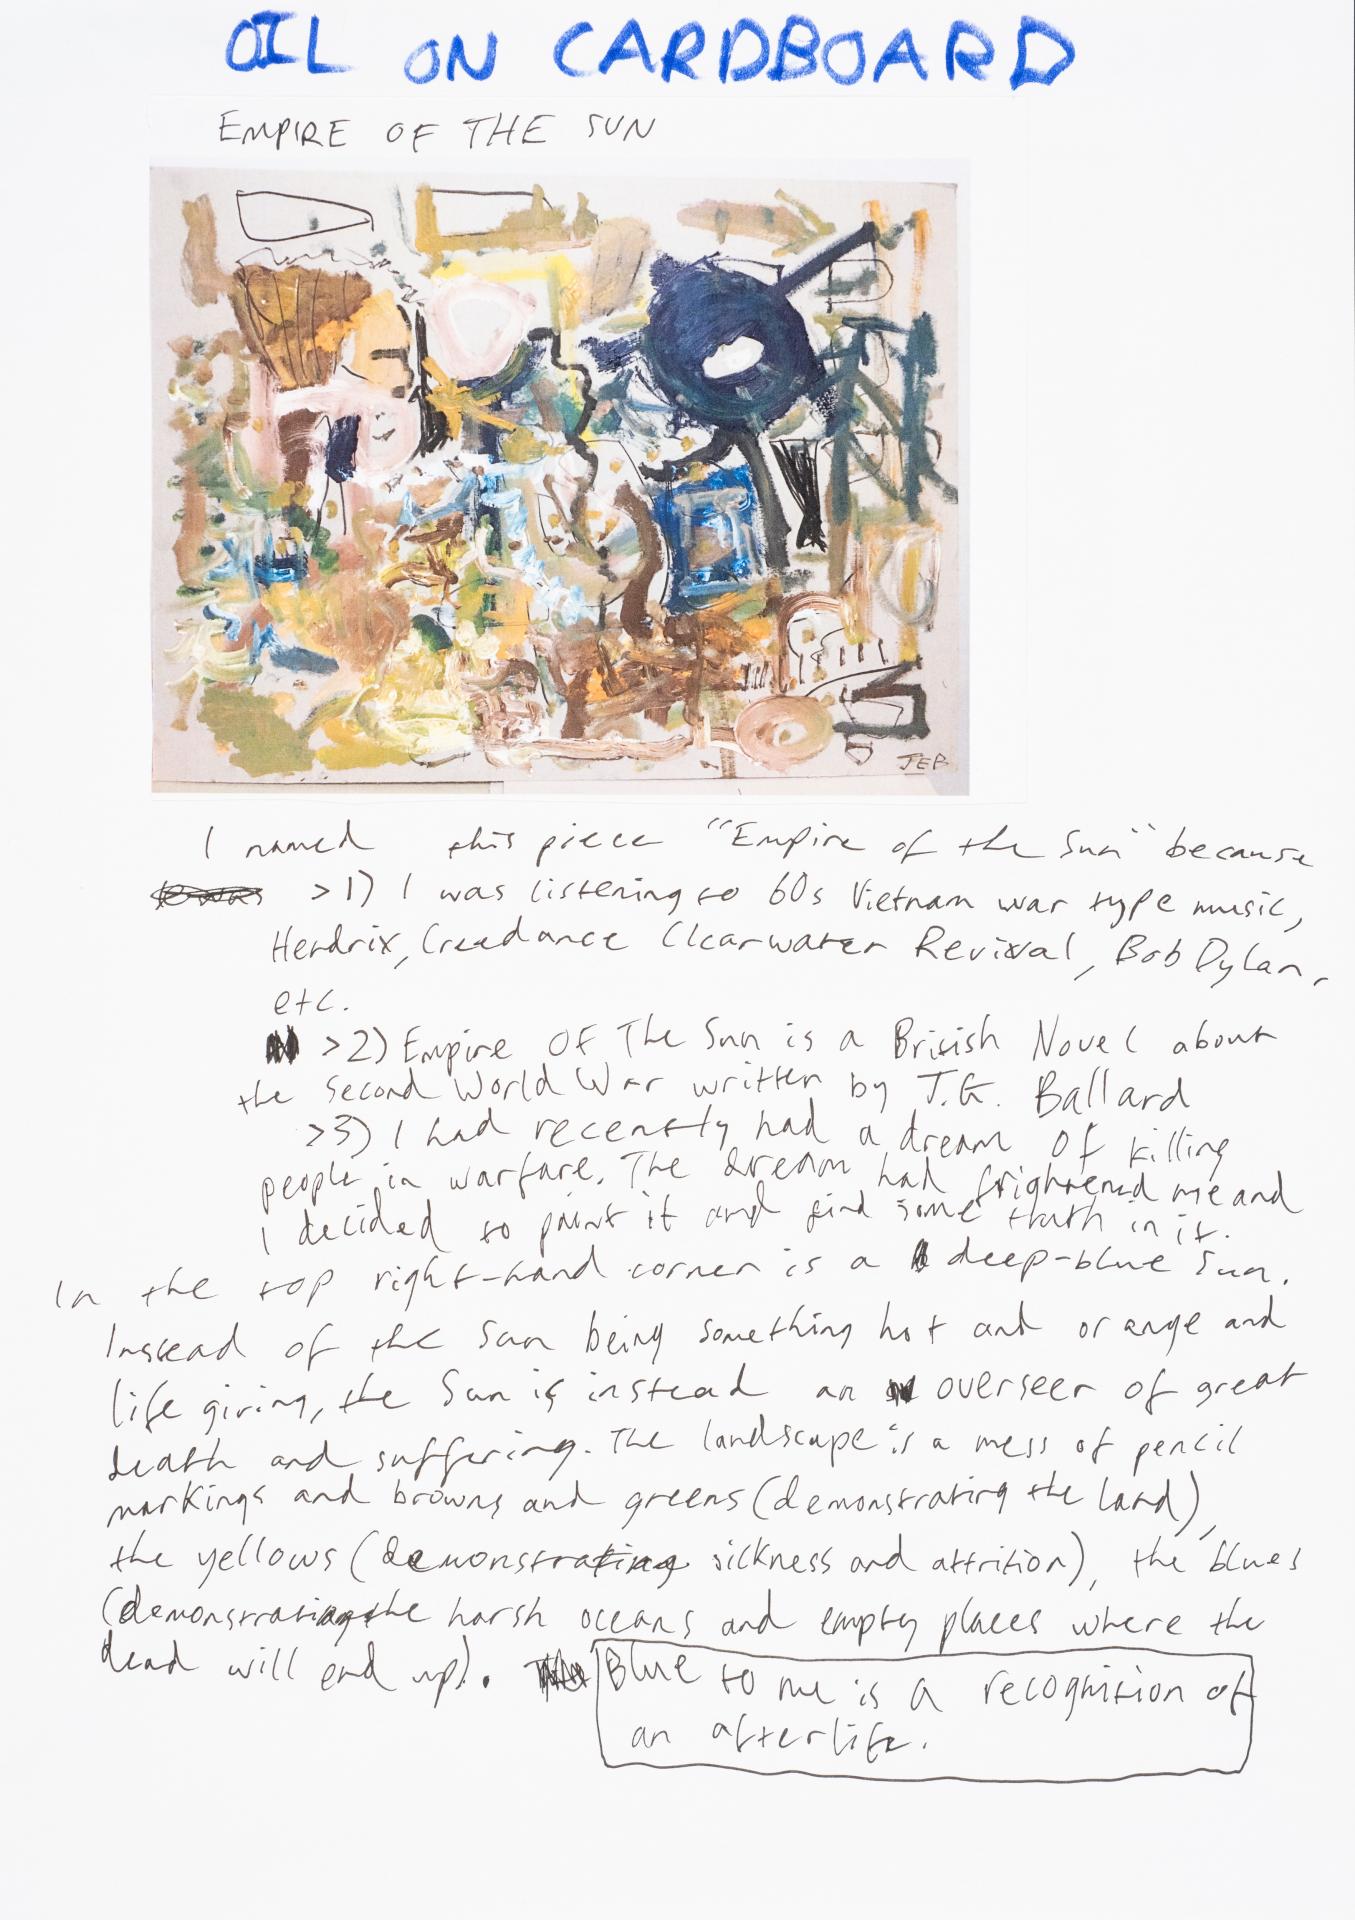 OIL ON CARDBOARD
EMPIRE OF THE SUN
JEB
I named this piece "Empire of the Sun" because
>1) I was listening to 60s Vietnam war type music,
Hendrix, Creedance Clearwater Revival, Bob Dylan,
etc.
>2) Empire Of The Sun is a British Novel about
the Second World War written by J.G. Ballard
>3) I had recently had a dream of killing
people in warfare. The dream had frightened me and
I decided to paint it and find some truth in it.
In the top right-hand corner is a deep-blue Sun.
Instead of the Sun being something hot and orange and
life giving, the Sun is instead an overseer of great
death and suffering. The landscape is a mess of pencil
markings and browns and greens (demonstrating the land),
the yellows (demonstrating sickness and attrition), the blues
(demonstrating the harsh oceans and empty places where the
dead will end up).
Blue to me is a recognition of
an afterlife.